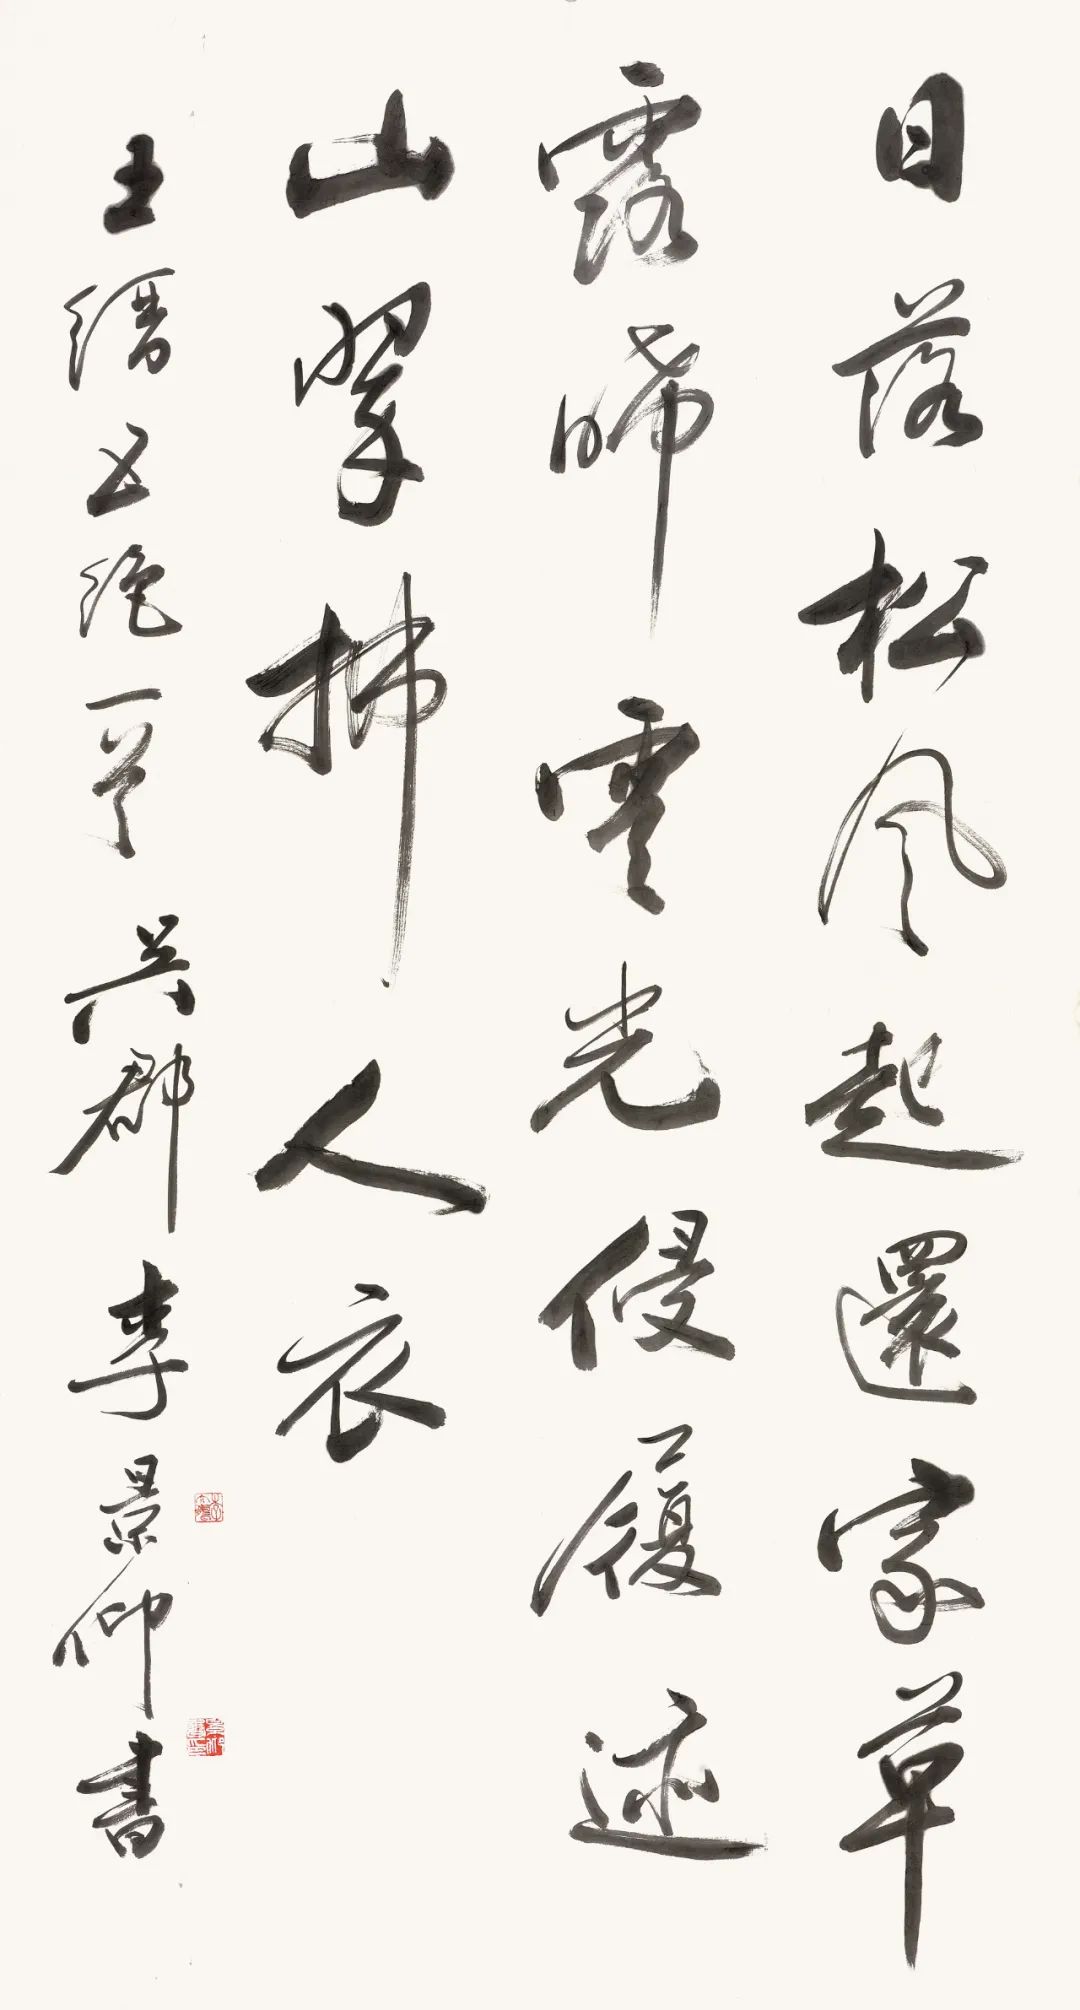 日落松風起還家草
露晞雲光侵履迹
山翠拂人衣
王縉五絕一首 吳郡李景仰書